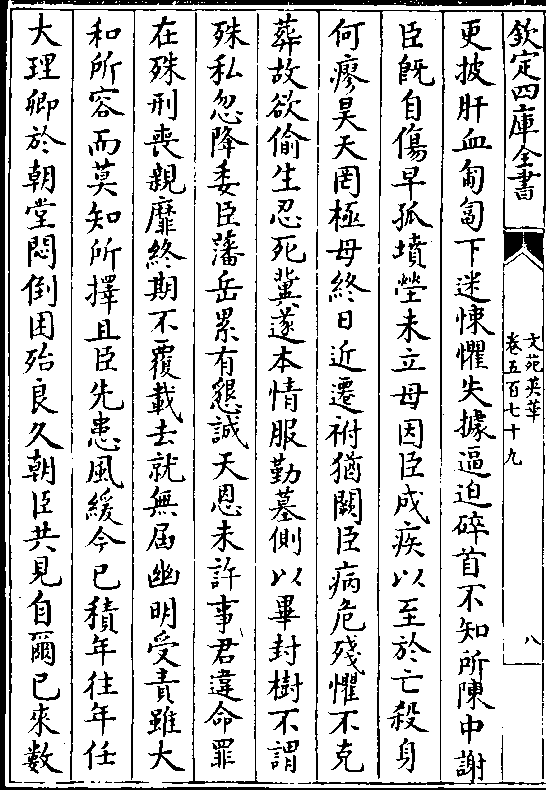 欽定四庫全書
文苑英華
卷五百七十九
八
更披肝血匍匐下迷悚懼失據逼迫碎首不知所陳中謝
臣既自傷早孤墳塋未立母因臣成疾以至於亡殺身
何瘳昊天罔極母終日近遷祔猶闕臣病危殘懼不克
葬故欲偷生忍死冀遂本情服勤墓側以畢封樹不謂
殊私忽降委臣藩岳累有懇誠天恩未許事君違命罪
在殊刑喪親靡終期不覆載去就無届幽明受責雖大
和所容而莫知所擇且臣先患風緩今已積年往年任
大理卿於朝堂悶倒困殆良久朝臣共見自爾已來數